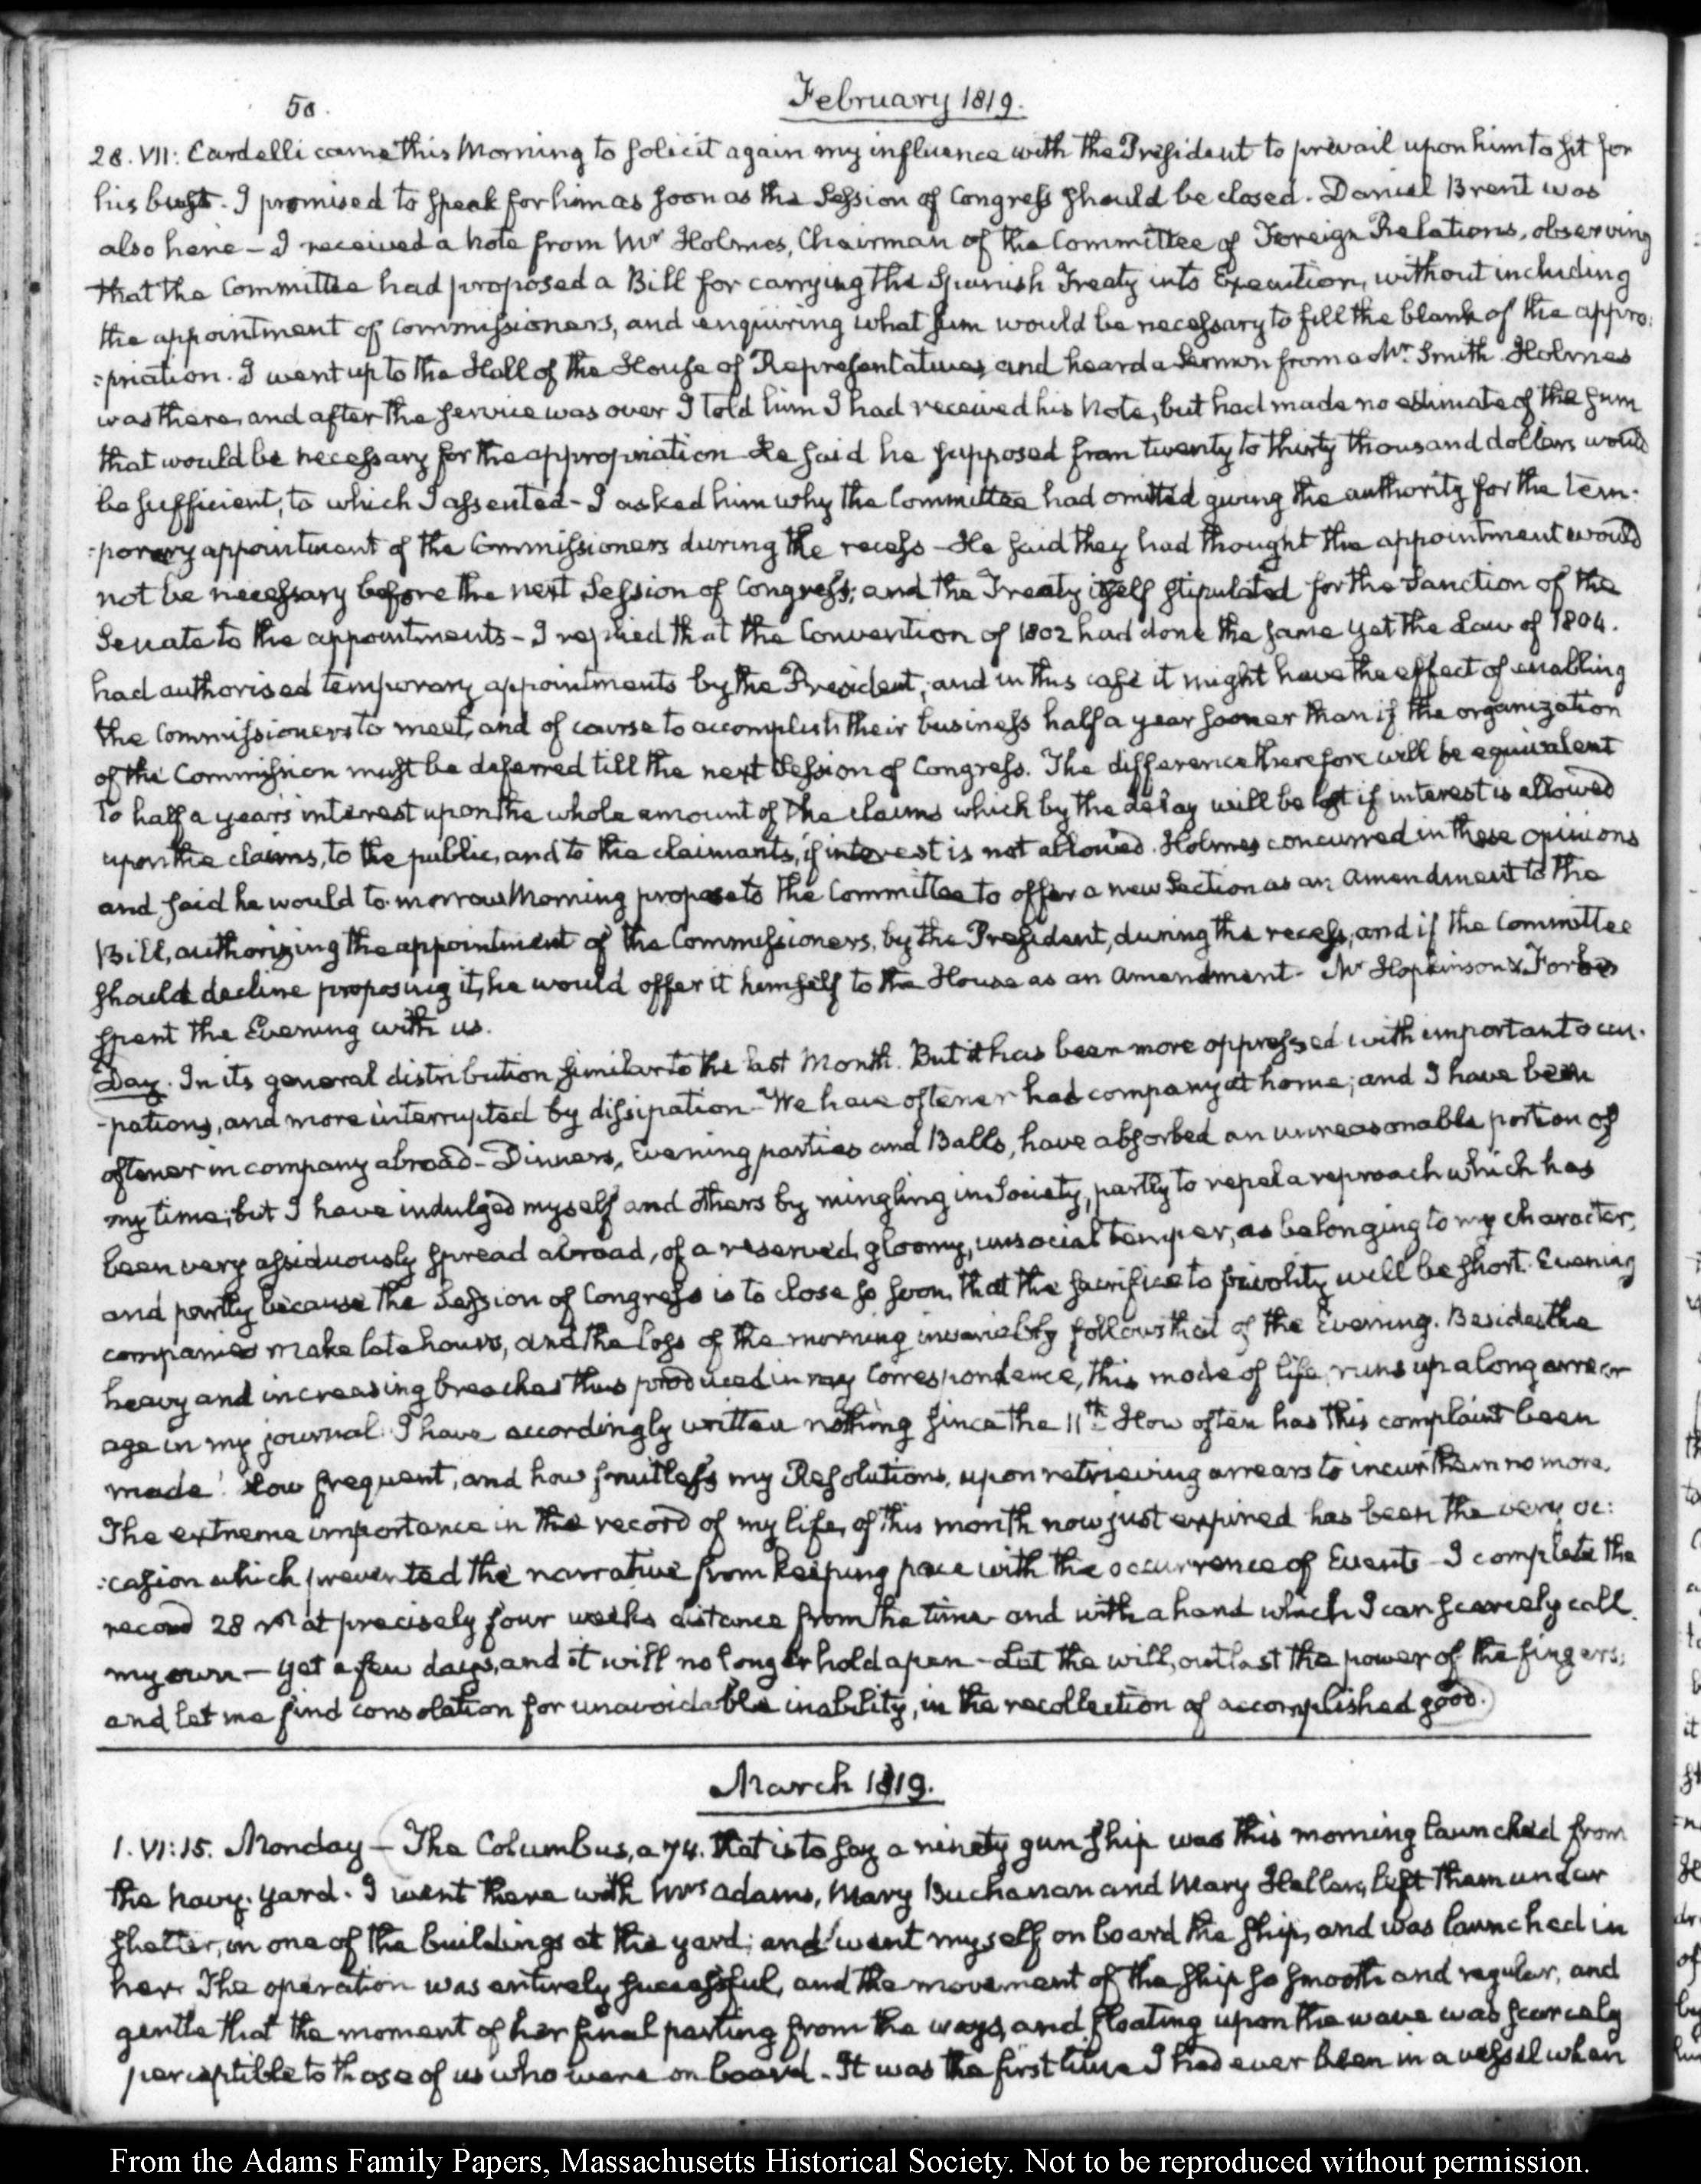 50.
February 1819.
28. VII: Cardelli came this Morning to solicit again my influence with the President to prevail upon him to sit for
his bust. I promised to speak for him as soon as the Session of Congress should be closed. Daniel Brent was
also here – I received a Note from Mr Holmes, Chairman of the Committee of Foreign Relations, observing
that the Committee had proposed a Bill for carrying the Spanish Treaty into Execution, without including
the appointment of Commissioners, and enquiring what sum would be necessary to fill the blank of the appro:
:priation. I went up to the Hall of the House of Representatives, and heard a Sermon from a Mr. Smith. Holmes
was there, and after the service was over I told him I had received his Note, but had made no estimate of the sum
that would be necessary for the appropriation. He said he supposed from twenty to thirty thousand dollars would
be sufficient, to which I assented – I asked him why the Committee had omitted giving the authority for the tem-
:porary appointment of the Commissioners during the recess – He said they had thought the appointment would
not be necessary before the next Session of Congress; and the Treaty itself stipulated for the Sanction of the
Senate to the appointments – I replied that the Convention of 1802 had done the same yet the Law of 1804.
had authorised temporary appointments by the President; and in this case it might have the effect of enabling
the Commissioners to meet, and of course to accomplish their business half a year sooner than if the organization
of the Commission must be deferred till the next Session of Congress. The difference therefore will be equivalent
to half a year's interest upon the whole amount of the claims which by the delay will be lost if interest is allowed
upon the claims, to the public, and to the claimants, if interest is not allowed. Holmes concurred in these opinions
and said he would to-morrow Morning propose to the Committee to offer a new Section as an Amendment to the
Bill, authorizing the appointment of the Commissioners, by the President, during the recess, and if the Committee
should decline proposing it, he would offer it himself to the House as an Amendment – Mr Hopkinson & Forbes
spent the Evening with us.
Day. In its general distribution similar to the last Month. But it has been more oppressed with important occu-
-pations, and more interrupted by dissipation – We have oftener had company at home; and I have been
oftener in company abroad – Dinners, Evening parties and Balls, have absorbed an unreasonable portion of
my time; but I have indulged myself and others by mingling in Society, partly to repel a reproach which has
been very assiduously spread abroad, of a reserved, gloomy, unsocial temper, as belonging to my character,
and partly because the Session of Congress is to close so soon, that the sacrifice to frivolity will be short. Evening
companies make late hours, and the loss of the morning invariably follows that of the Evening. Besides the
heavy and increasing breaches thus produced in my Correspondence, this mode of life, runs up a long arrear
age in my journal. I have accordingly written nothing since the 11th. How often has this complaint been
made! how frequent, and how fruitless my Resolutions, upon retrieving arrears to incur them no more.
The extreme importance in the record of my life, of this month now just expired has been the very oc:
:casion which prevented the narrative from keeping pace with the occurrence of Events – I complete the
record 28 at precisely four weeks distance from the time and with a hand which I can scarcely call
my own – yet a few days, and it will no longer hold a pen – Let the will, outlast the power of the fingers;
and let me find consolation for unavoidable inability, in the recollection of accomplished good.
March 1819.
1. VI:15. Monday – The Columbus, a 74. that is to say a ninety gun ship was this morning launched from
the Navy-yard. I went there with Mrs Adams, Mary Buchanan and Mary Hellen, left them under
shelter, in one of the buildings at the yard; and went myself on board the ship, and was launched in
her. The operation was entirely successful, and the movement of the ship so smooth and regular, and
gentle that the moment of her final parting from the ways, and floating upon the wave was scarcely
perceptible to those of us who were on board. – It was the first time I had ever been in a vessel when
From the Adams Family Papers, Massachusetts Historical Society. Not to be reproduced without permission.